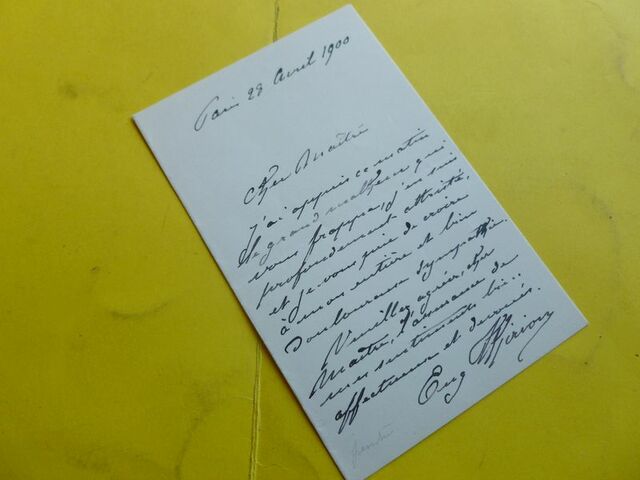 Paris 28 Avril 1900
Cher Maître
J'ai appris ce matin
le grand malheur qui
vous frappa, j'en suis
profondément attristé,
et je vous prie de croire
à mon entière et bien
douloureuse sympathie.
Veuillez agréer, cher
Maître, l'assurance de
mes sentiments bien
affectueux et dévoués.
Eug